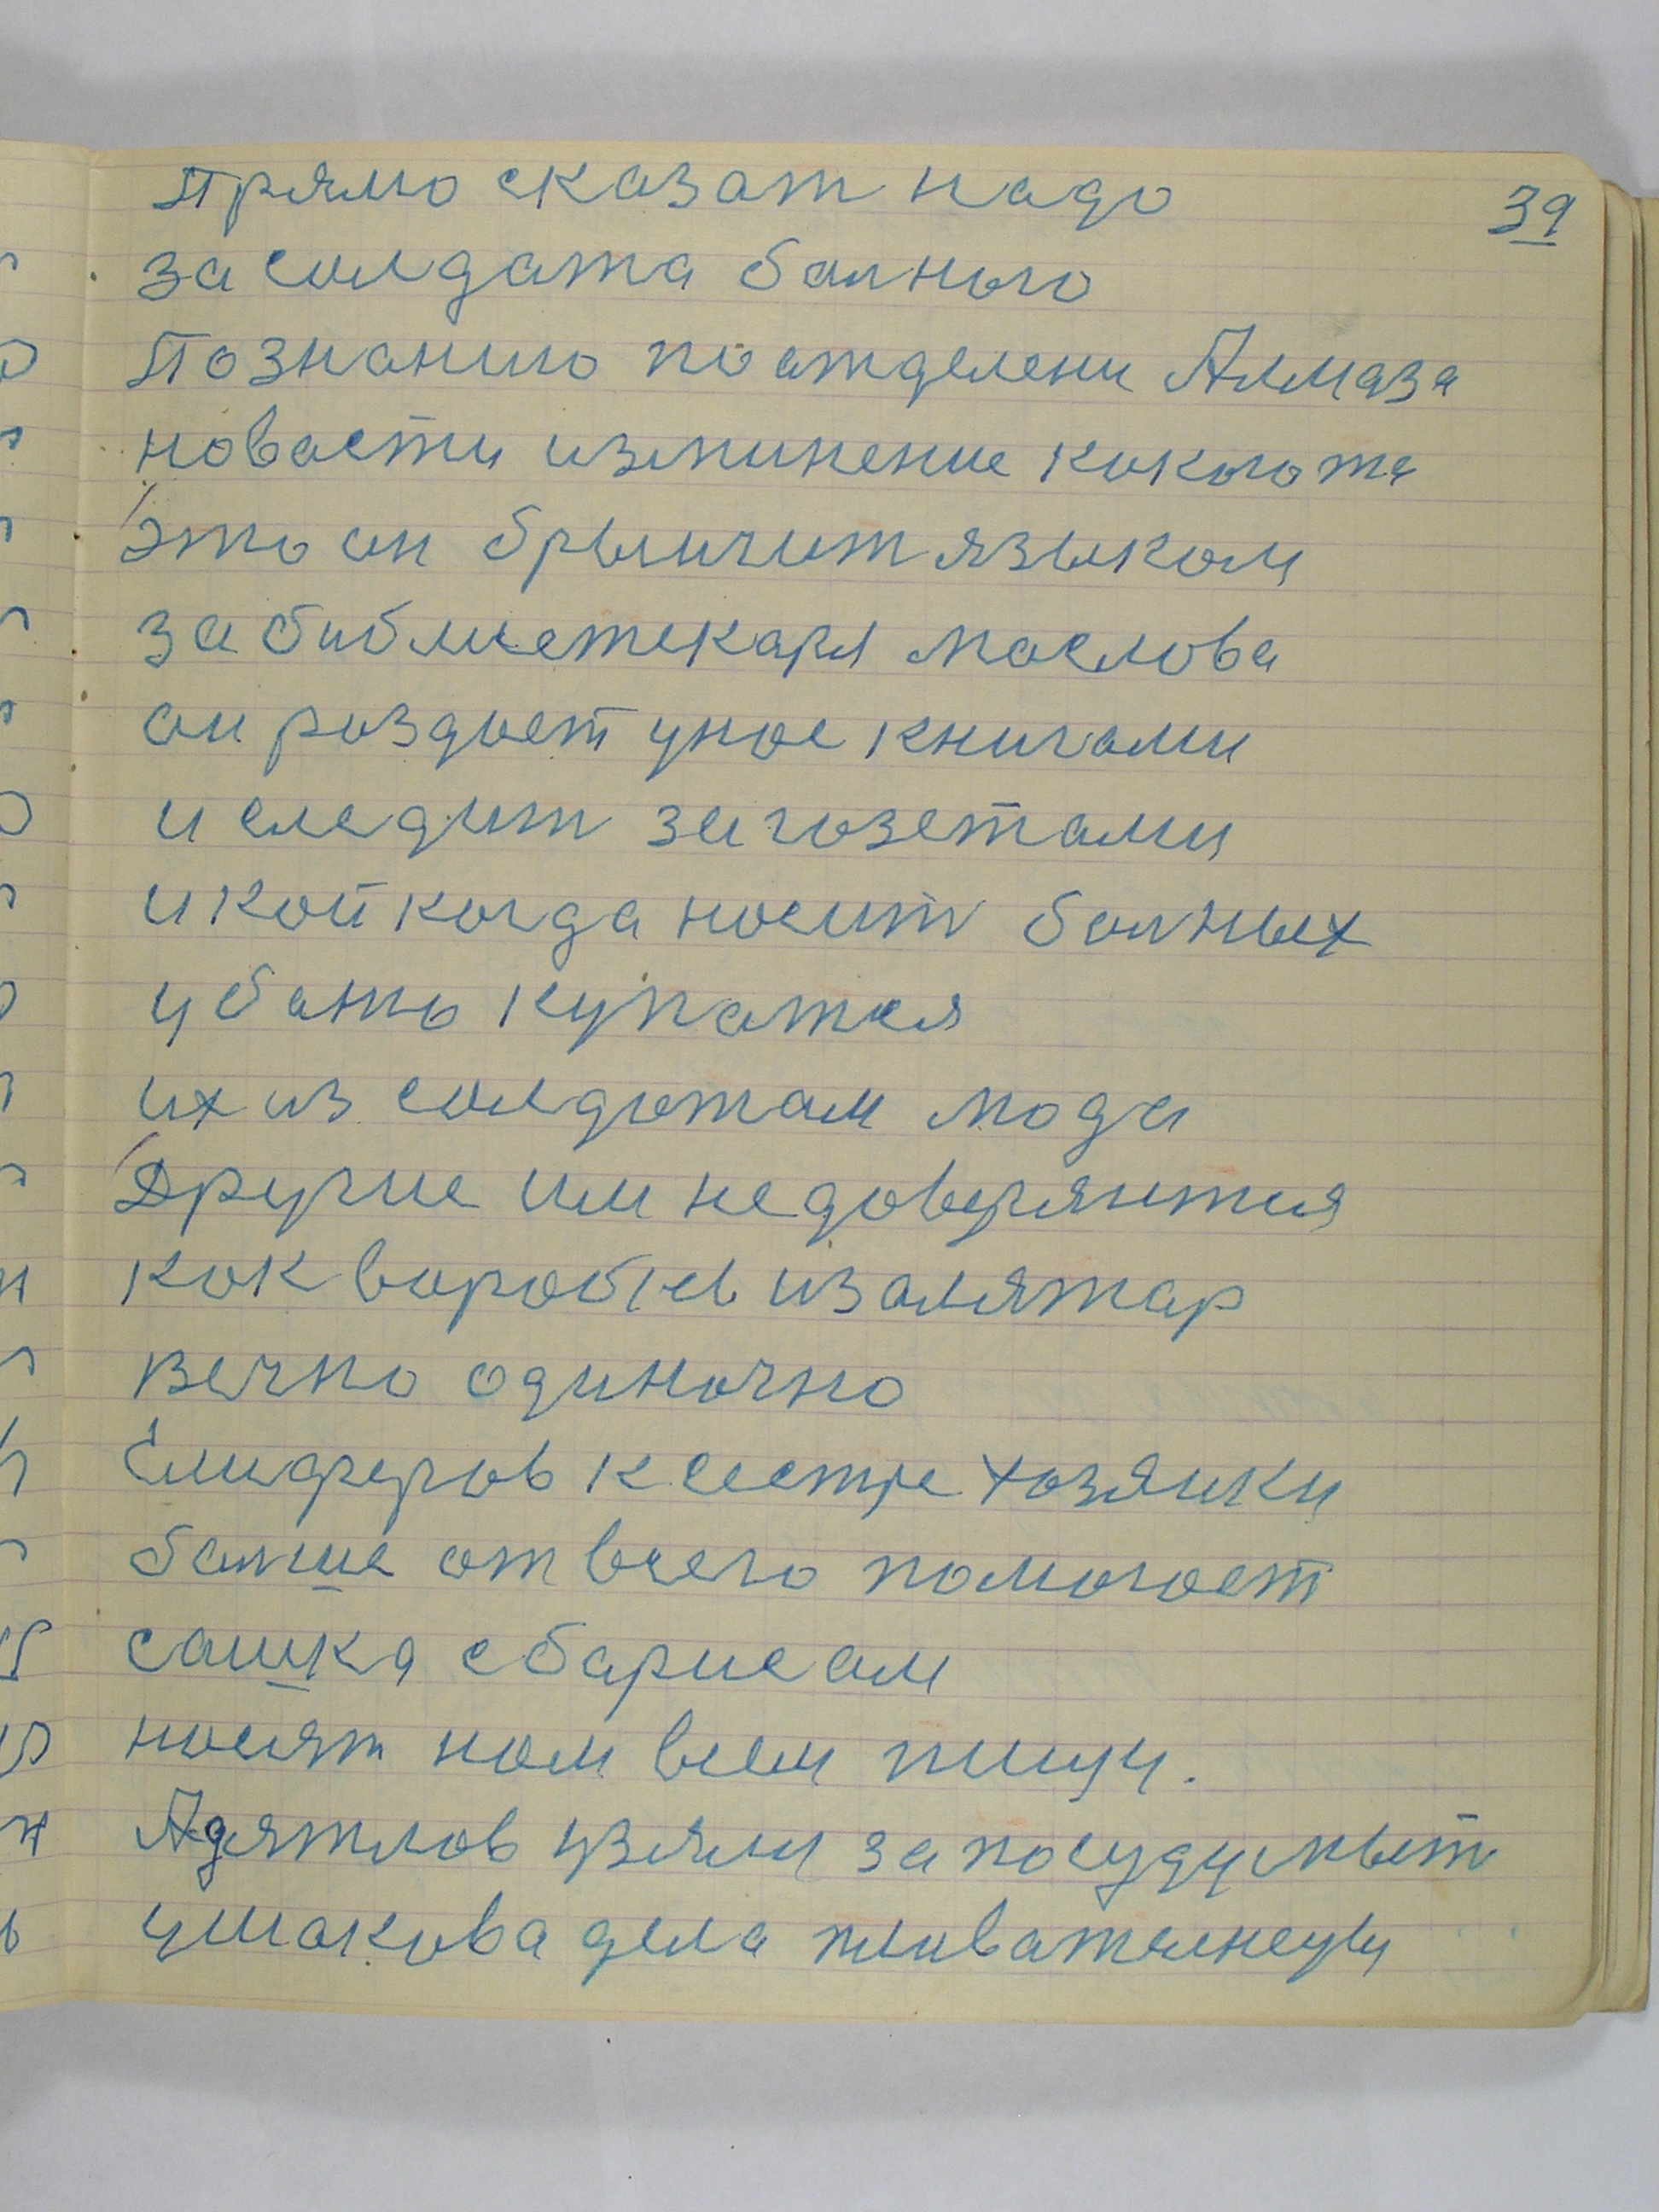 Прямо сказат надо
39
за солдата балного
Познанию по атделени Алмаза
новасти изминение какогота
это он брынчит языком
за библиетекаря маслова
он роздает унас книгами
и следит загазетами
и кой когда носит балных
у баню купатся
их из солдатам мода
Другие им недоверяются
как воробьев изалятар
вечно одиночно
к сестре хозяики
балше от всего помогает
сашка сбарисам
носят нам всем пищу.
Адятлов узяли за посуду мыт
ушакова дела